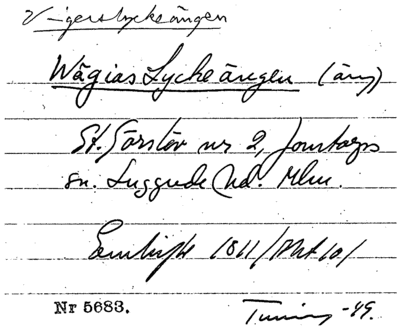 Vigerslyckeängen
Wågias Lycke ängen (äng)
St. Görslöv nr 2, Jonstorps
sn. Luggude hd. Mlm.
1811/Akt 10/
Nr 5683. -49.